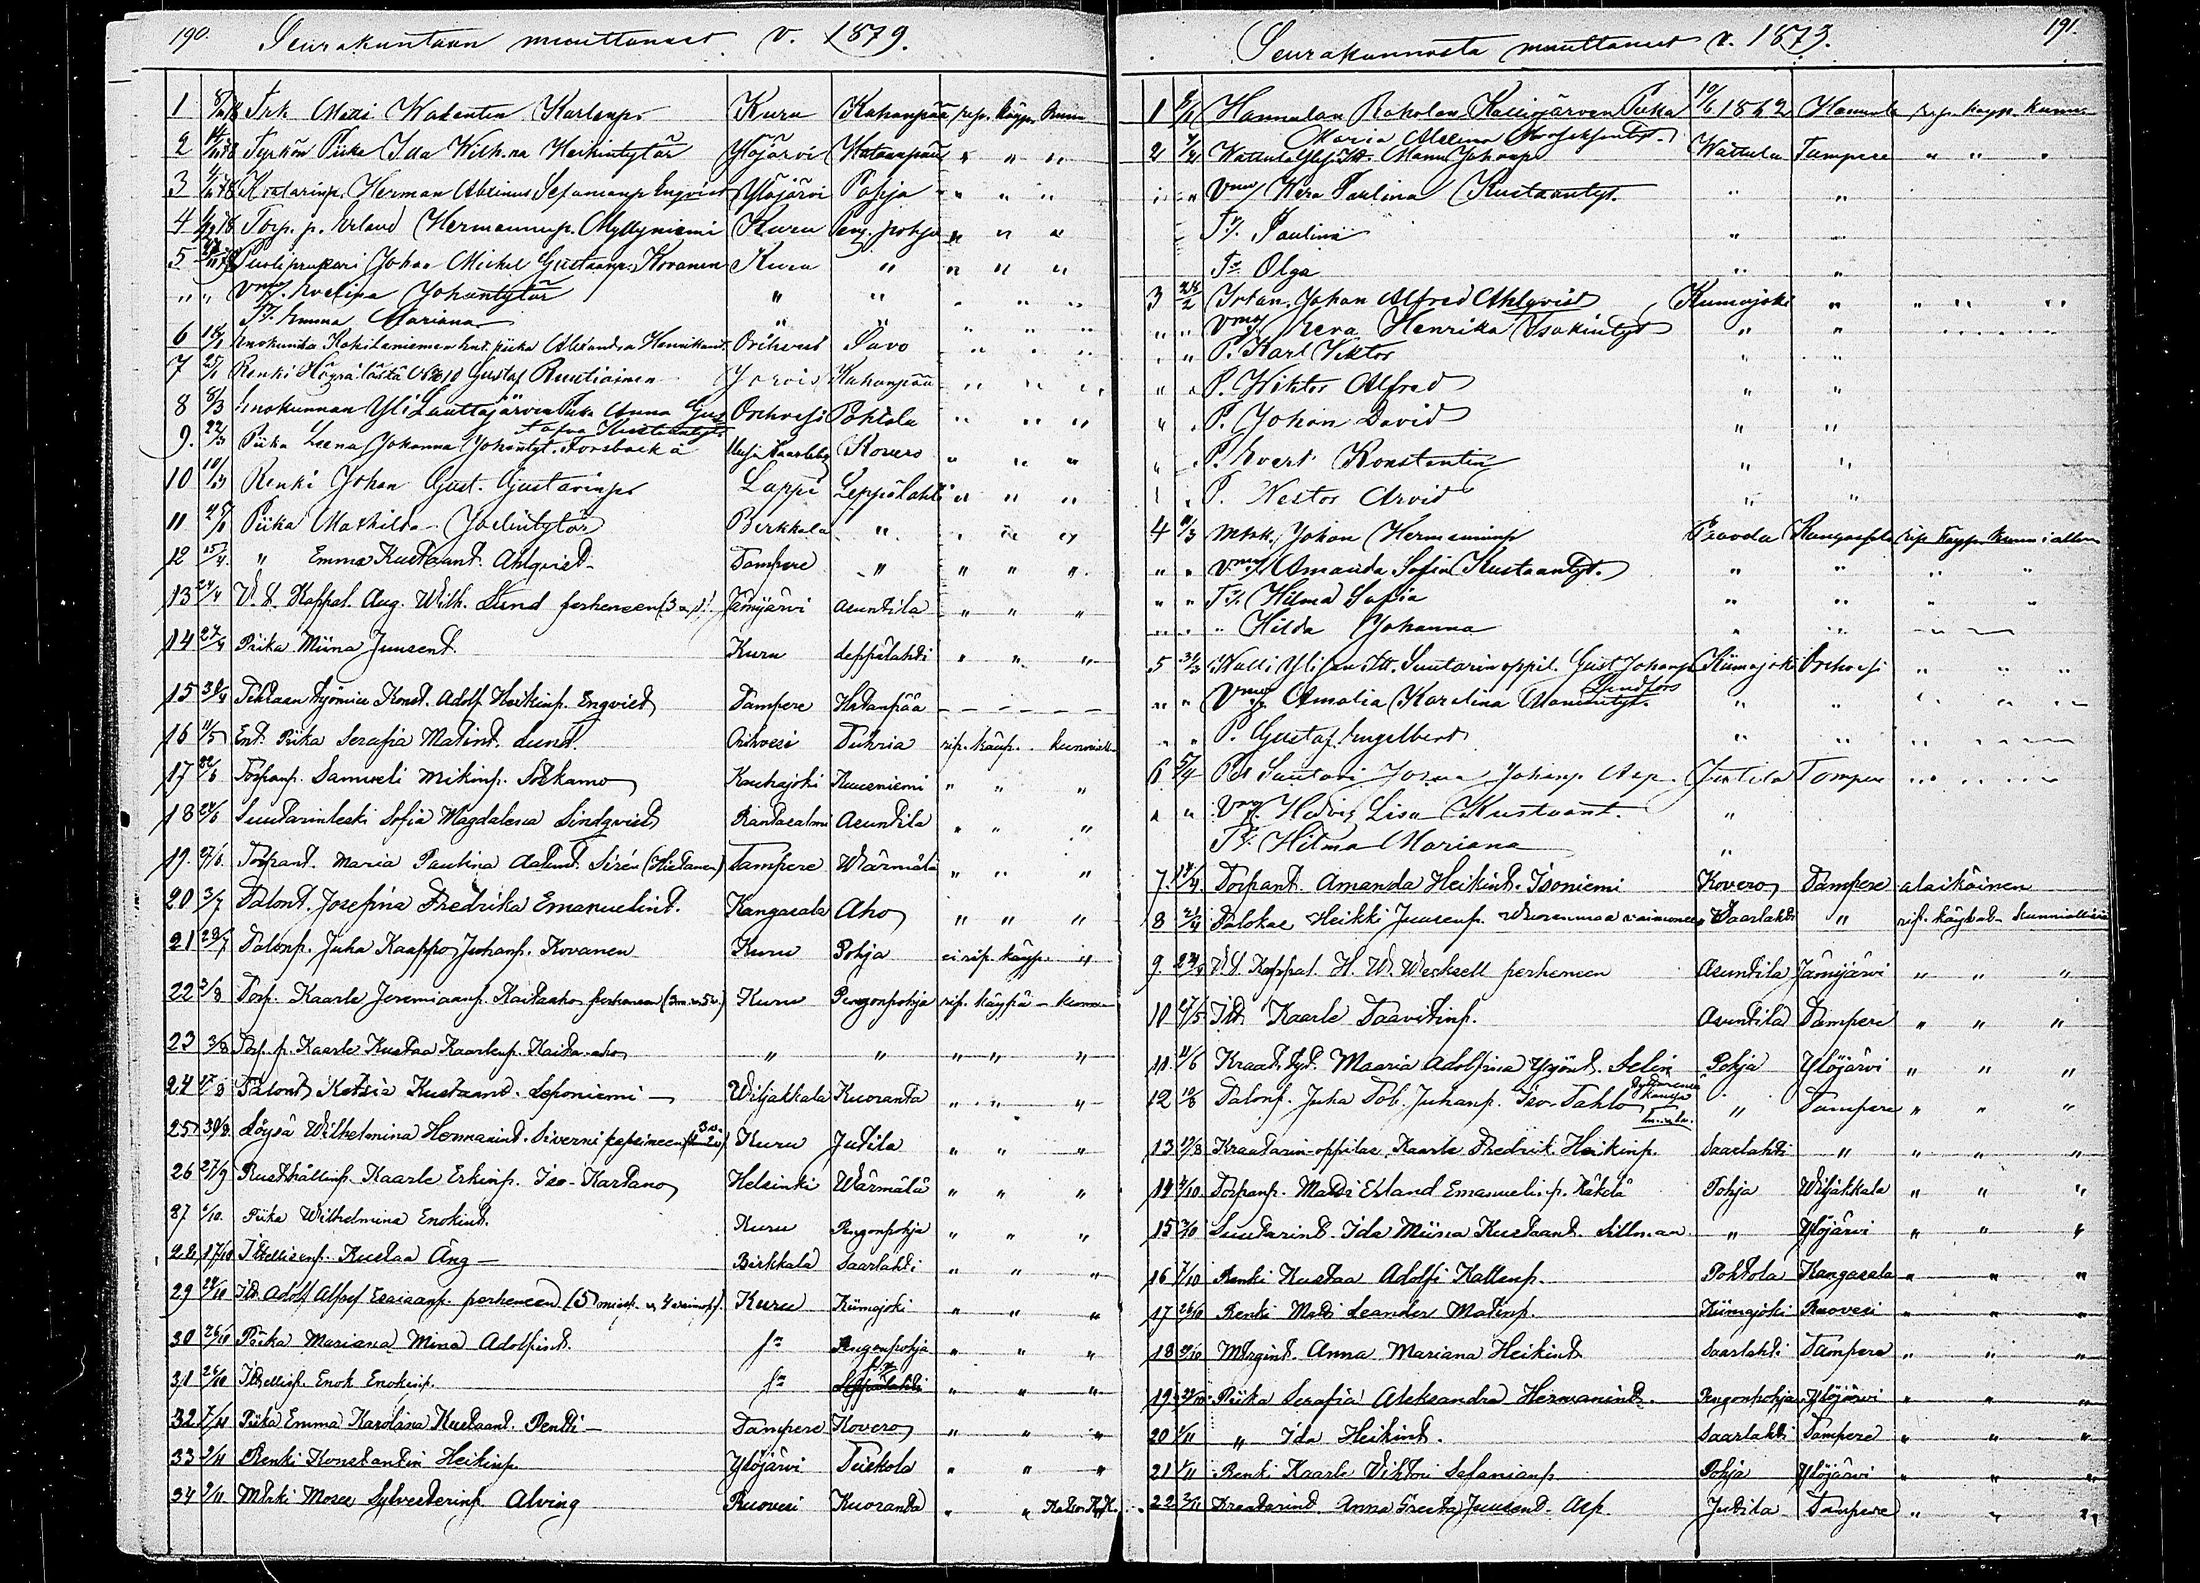 190. Seurakuntaan muuttaneet v. 1879.
1 Trk. Matti Walentin Karlenp. Kuru Kahanpää rip. käyp. kunn
2 Tyrkön Piika Ida Wilh.na Heikintytär Ylöjärvi Hatanpää " " "
3 Kratarinp. Herman Abelinus Sefanianp. Engvist Ylöjärvi Pohja " " "
4 Torp. p. Erland Hermanninp. Myllyniemi Kuru Peng. pohja " " "
5 Johan Michel Gustaanp. Kovanen Kuru " " " "
" " Vmo. Evelina Johantytär " " " " "
Tr. Emma Mariana " " " " "
6 Piika Alexandra Henrikant. Orihvesi Pavo " " "
7 25/1 Renki Gustaf Ruutiainen Jorois Kahanpää " " "
8 8/3 Enokunnan Yli Lauttajärven Piika Anna Gus Orihvesi Pohtola " " "
tafva Kustaantyt.
9. 22/3 Piika Leena Johanna Johantyt. Forsbacka Kaarleby Kovero " " "
10 10/3 Renki Johan Gust. Gustavinp. Lappi Leppälahti " " "
11 Piika Mathilda Joelintytär Birkkala " " " "
12 15/4 " Emma Kustaant. Ahlqvist Tampere " " " "
13 24/4 V. t. Kappal. Aug. Wilh. Lund perheneen Jämijärvi Asuntila " " "
14 27/4 Piika Miina Juusent. Kuru Leppälahti " " "
15 30/4 Tehtaan työmies Konst. Adolf Heikinp. Engvist Tampere Hatanpää
16 11/5 Ent. Piika Serafia Matint. Lund. Orihvesi Tuhria rip. käyp. kunniall.
17 Torpanp. Samueli Mikinp. Sotkamo Kauhajoki Kuusniemi " " "
18 24/6 Suutarinleski Sofia Magdalena Lindqvist Rantasalmi Asuntila " " "
19. 27/6. Torpant. Maria Paulina Aatamt. Sirén (Hietanen) Tampere Wärmälä " " "
20 3/7 Talont. Josefina Fredrika Emanuelint. Kangasala Aho " " "
21 28/7 Talonp. Juha Kaappo Juhanp. Kovanen Kuru Pohja ei rip. käyp. "
22 3/8 Torp. Kaarle Jeremianp. Kaitaaho perheneen Kuru Pengonpohja rip. käypä - kunn
23 3/8 Torp. p. Kaarle Kustaa Kaarlenp. Kaita-aho " " " " "
24 17/8 Talont. Ketsia Kustaant. Leponiemi - Wiljakkala Kuoranta " " "
25 30/8 Löysä Wilhelmina Hermanint. Siverni Kuru Jutila " " "
26 27/9 Rusthällinp. Kaarle Erkinp. Iso-Kartano Helsinki Wärmälä " " "
27 6/10. Piika Wilhelmina Enokint. Kuru Pengonpohja " " "
28 17/10 Itsellisenp. Kustaa Äng - Birkkala Saarlahti " " "
29 24/10 Its. Adolf Alfref Esaianp. perheneen (5 miesp. 4 vaimop.) Kuru Kiimajoki " " "
30 26/10 Piika Mariana Mina Adolfint. sn Pengonpohja " " "
31 26/10 Itsellisp. Enok Enokinp. sn sn " " "
32 7/11 Piika Emma Karolina Kustaant. Pentti - Tampere Kovero " " "
33 9/11 Renki Konstantin Heikinp. Ylöjärvi Teiskola " " "
34 9/11 Mtrki Moses Sylvesterinp. Alving Ruovesi Kuoranta " "
Seurakunnasta muuttaneet v. 1873. 191.
1 Hannulan Raholan Kalliojärven Piika 10/6 1862 Hannula rip. käyp. kunn
Maria
2 Mannu Johanp. Wattula Tampere " " "
" " Vmo. Wera Paulina Kustaantyt. " "
Tr. Paulina " "
Tr. Olga " "
3 24/2 Johan Alfred Ahlqvist Kiimajoki " " " "
" " Vmo. Eeva Henrika Isakintyt. " "
" " P. Karl Viktor " "
" " P. Wiktor Alfred " "
" " P. Johan David " "
" " P. Evert Konstantin " "
" " P. Nestor Arvid " "
4 11/3 Mtrk. Johan Hermaninp. Paavola Kangasala rip. käyp. kunniallin
" " Vmo. Amanda Sofia Kustaantyt. " " " "
" " Tr. Hilma Sofia " " " "
" " " Hilda Johanna " "
5 31/3 Suutarin oppil. Gust Johanp. Kiimajoki Orihvesi " " "
Lindfors
" " Vmo. Amalia Karolina Manuntyt. " " " " "
" " P. Gustaf Engelbert " "
6 5/4 Suutari Josua Johanp. Asp. Jutila Tampere
" " Vmo. Hedvig Lisa Kustaant. "
Tr. Hilma Mariana "
7. Torpant. Amanda Heikint. Isoniemi Kovero Tampere alaikäinen
8 21/4 Talokas Heikki Juusenp. Wuorenmaa vaimoneen Saarlahti " rip. käyvät kunniallisia
9 V. t. Kappal. H. W. Wecksell perheneen Asuntila Jämijärvi " " "
10 Its. Kaarle Taavitinp. Asuntila Tampere " " "
11 11/6 Kraat. tyt. Maaria Adolfina Yrjönt. Selin Pohja Ylöjärvi " " "
12 Talonp. Juha Tob. Juhanp. Iso-Tahlo " Tampere " " "
13 Kraatarin-oppilas Kaarle Fredrik Heikinp. Saarlahti " " " "
14 Torpanp. Matti Erland Emanuelinp. Käkelä Pohja Wiljakkala " " "
15 Suutarint. Ida Miina Kustaant. Sillman " Ylöjärvi " " "
16 7/10 Renki Kustaa Adolfi Kallenp. Pohtola Kangasala " " "
17 Renki Matti Leander Matinp. Kiimajoki Ruovesi " " "
18 Mtrgint. Anna Mariana Heikint. Saarlahti Tampere " " "
19 Piika Serafia Aleksandra Hermanint. Pengonpohja Ylöjärvi " " "
20 1/11 " Ida Heikint. Saarlahti Tampere " " "
21 1/11 Renki Kaarle Vihtori Sefanianp. Pohja Ylöjärvi " " "
22 Kraatarint. Anna Greeta Juusent. Asp. Jutila Tampere " " "